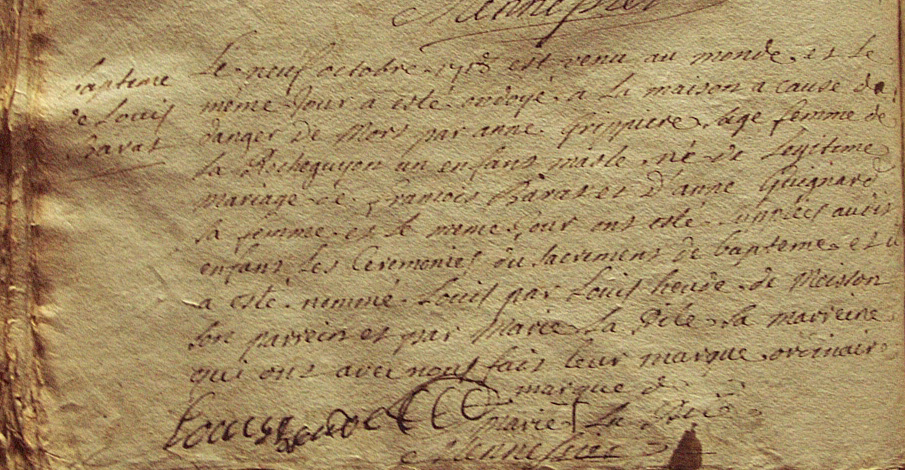 bapteme
de Louis
Barat
Le neuf octobre 1718 est venu au monde et le
meme jour a esté ondoyé a la maison a cause de
danger de mort par anne Grippiere sage femme de
la Rocheguyon un enfant masle né de legitime
mariage de françois Barat et d'anne Guignard
sa femme et le meme jour ont esté supplées audit
enfant les Ceremonies du sacrement de bapteme et il
a esté nommé Louis par Louis heude de Moisson
son parrein et par Marie La la marreine
qui ont avec nous fait leur marque ordinaire
marque de
marie La